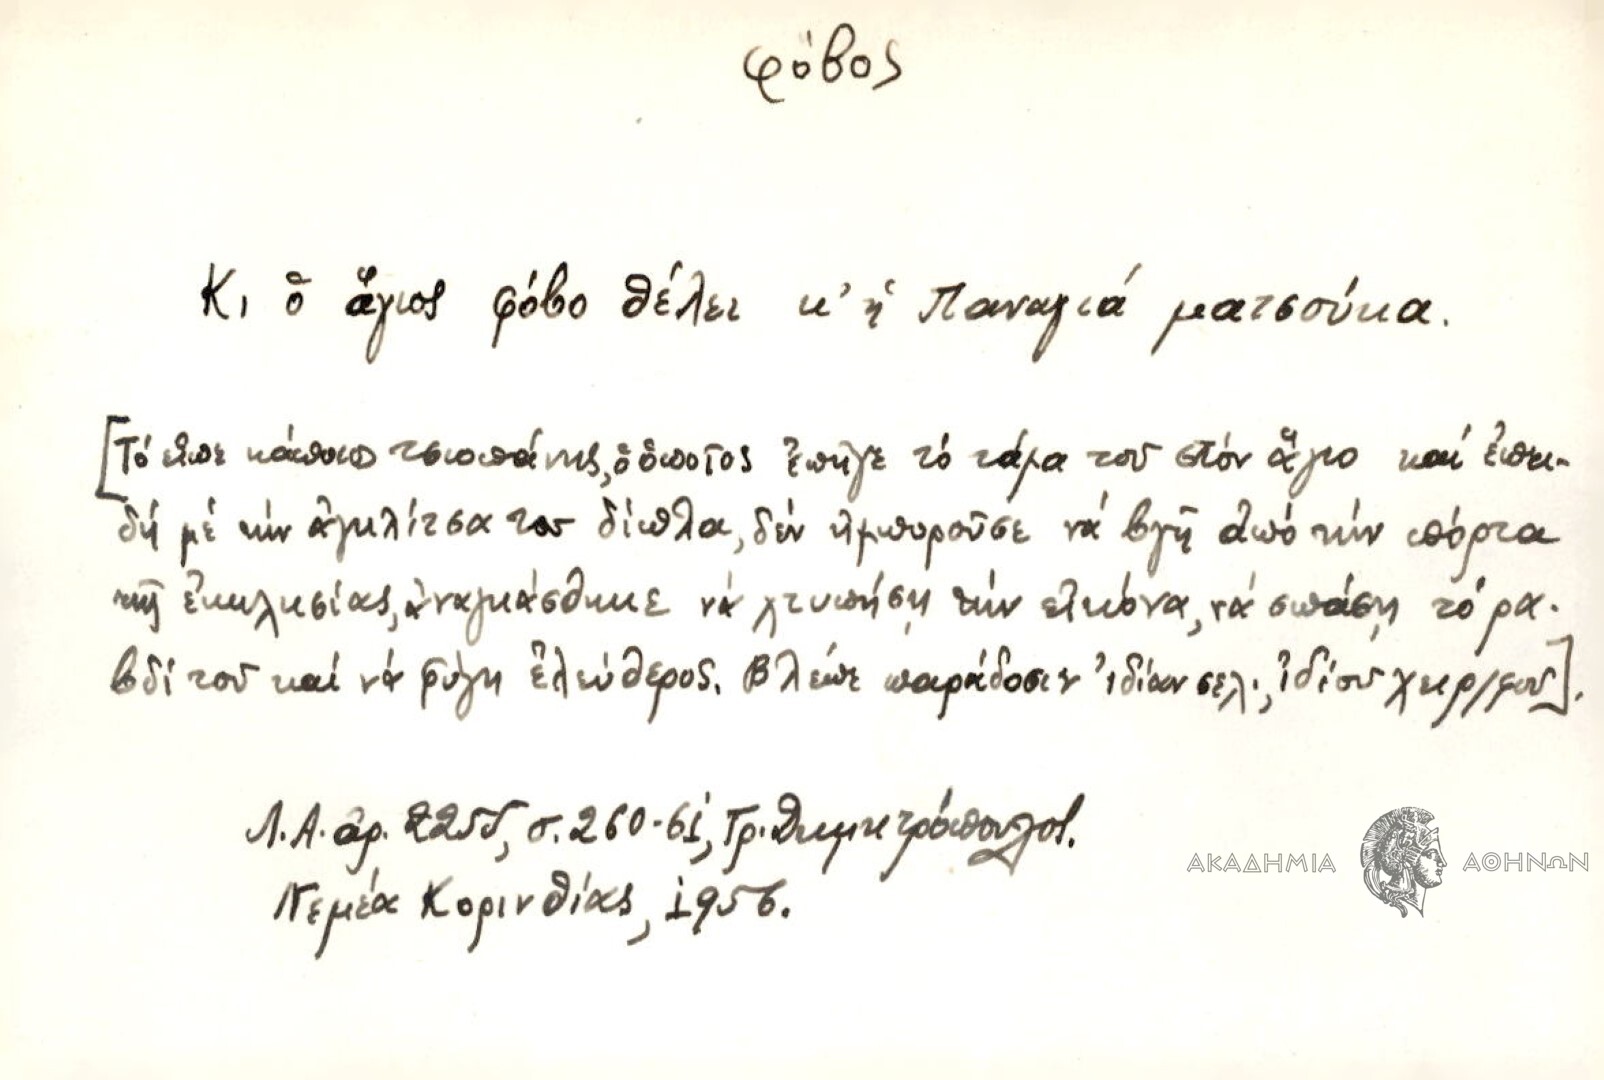 φόβος
Κι ὁ ἅγιος φόβο θέλει κ' ἡ Παναγιά ματσούκα.
[Τό εἶπε κάποιος τσιοπάνης, ὁ ὁποῖος ἐπῆγε τό τάμα τοῦ στόν ἅγιο καί ἐπει-
δή μέ τήν ἀγκλίτσα του δίπλα, δέν ἠμποροῦσε νά βγῇ ἀπό τήν πόρτα
τῆς ἐκκλησίας, ἀναγκάσθηκε νά χτυπήσῃ τήν εἰκόνα, νά σπάσῃ τό ρα-
βδί τοῦ καί νά φύγη ἐλεύθερος. Βλέπε παράδοσιν ἰδίαν σελ., ἰδίου χειρ/φου].
Λ.Α. ἀρ. 2255, σ. 260-61, Γρ. Δημητρόπουλος.
Νεμέα Κορινθίας, 1956.
ΑΚΑΔΗΜΙΑ ΑΘΗΝΩΝ